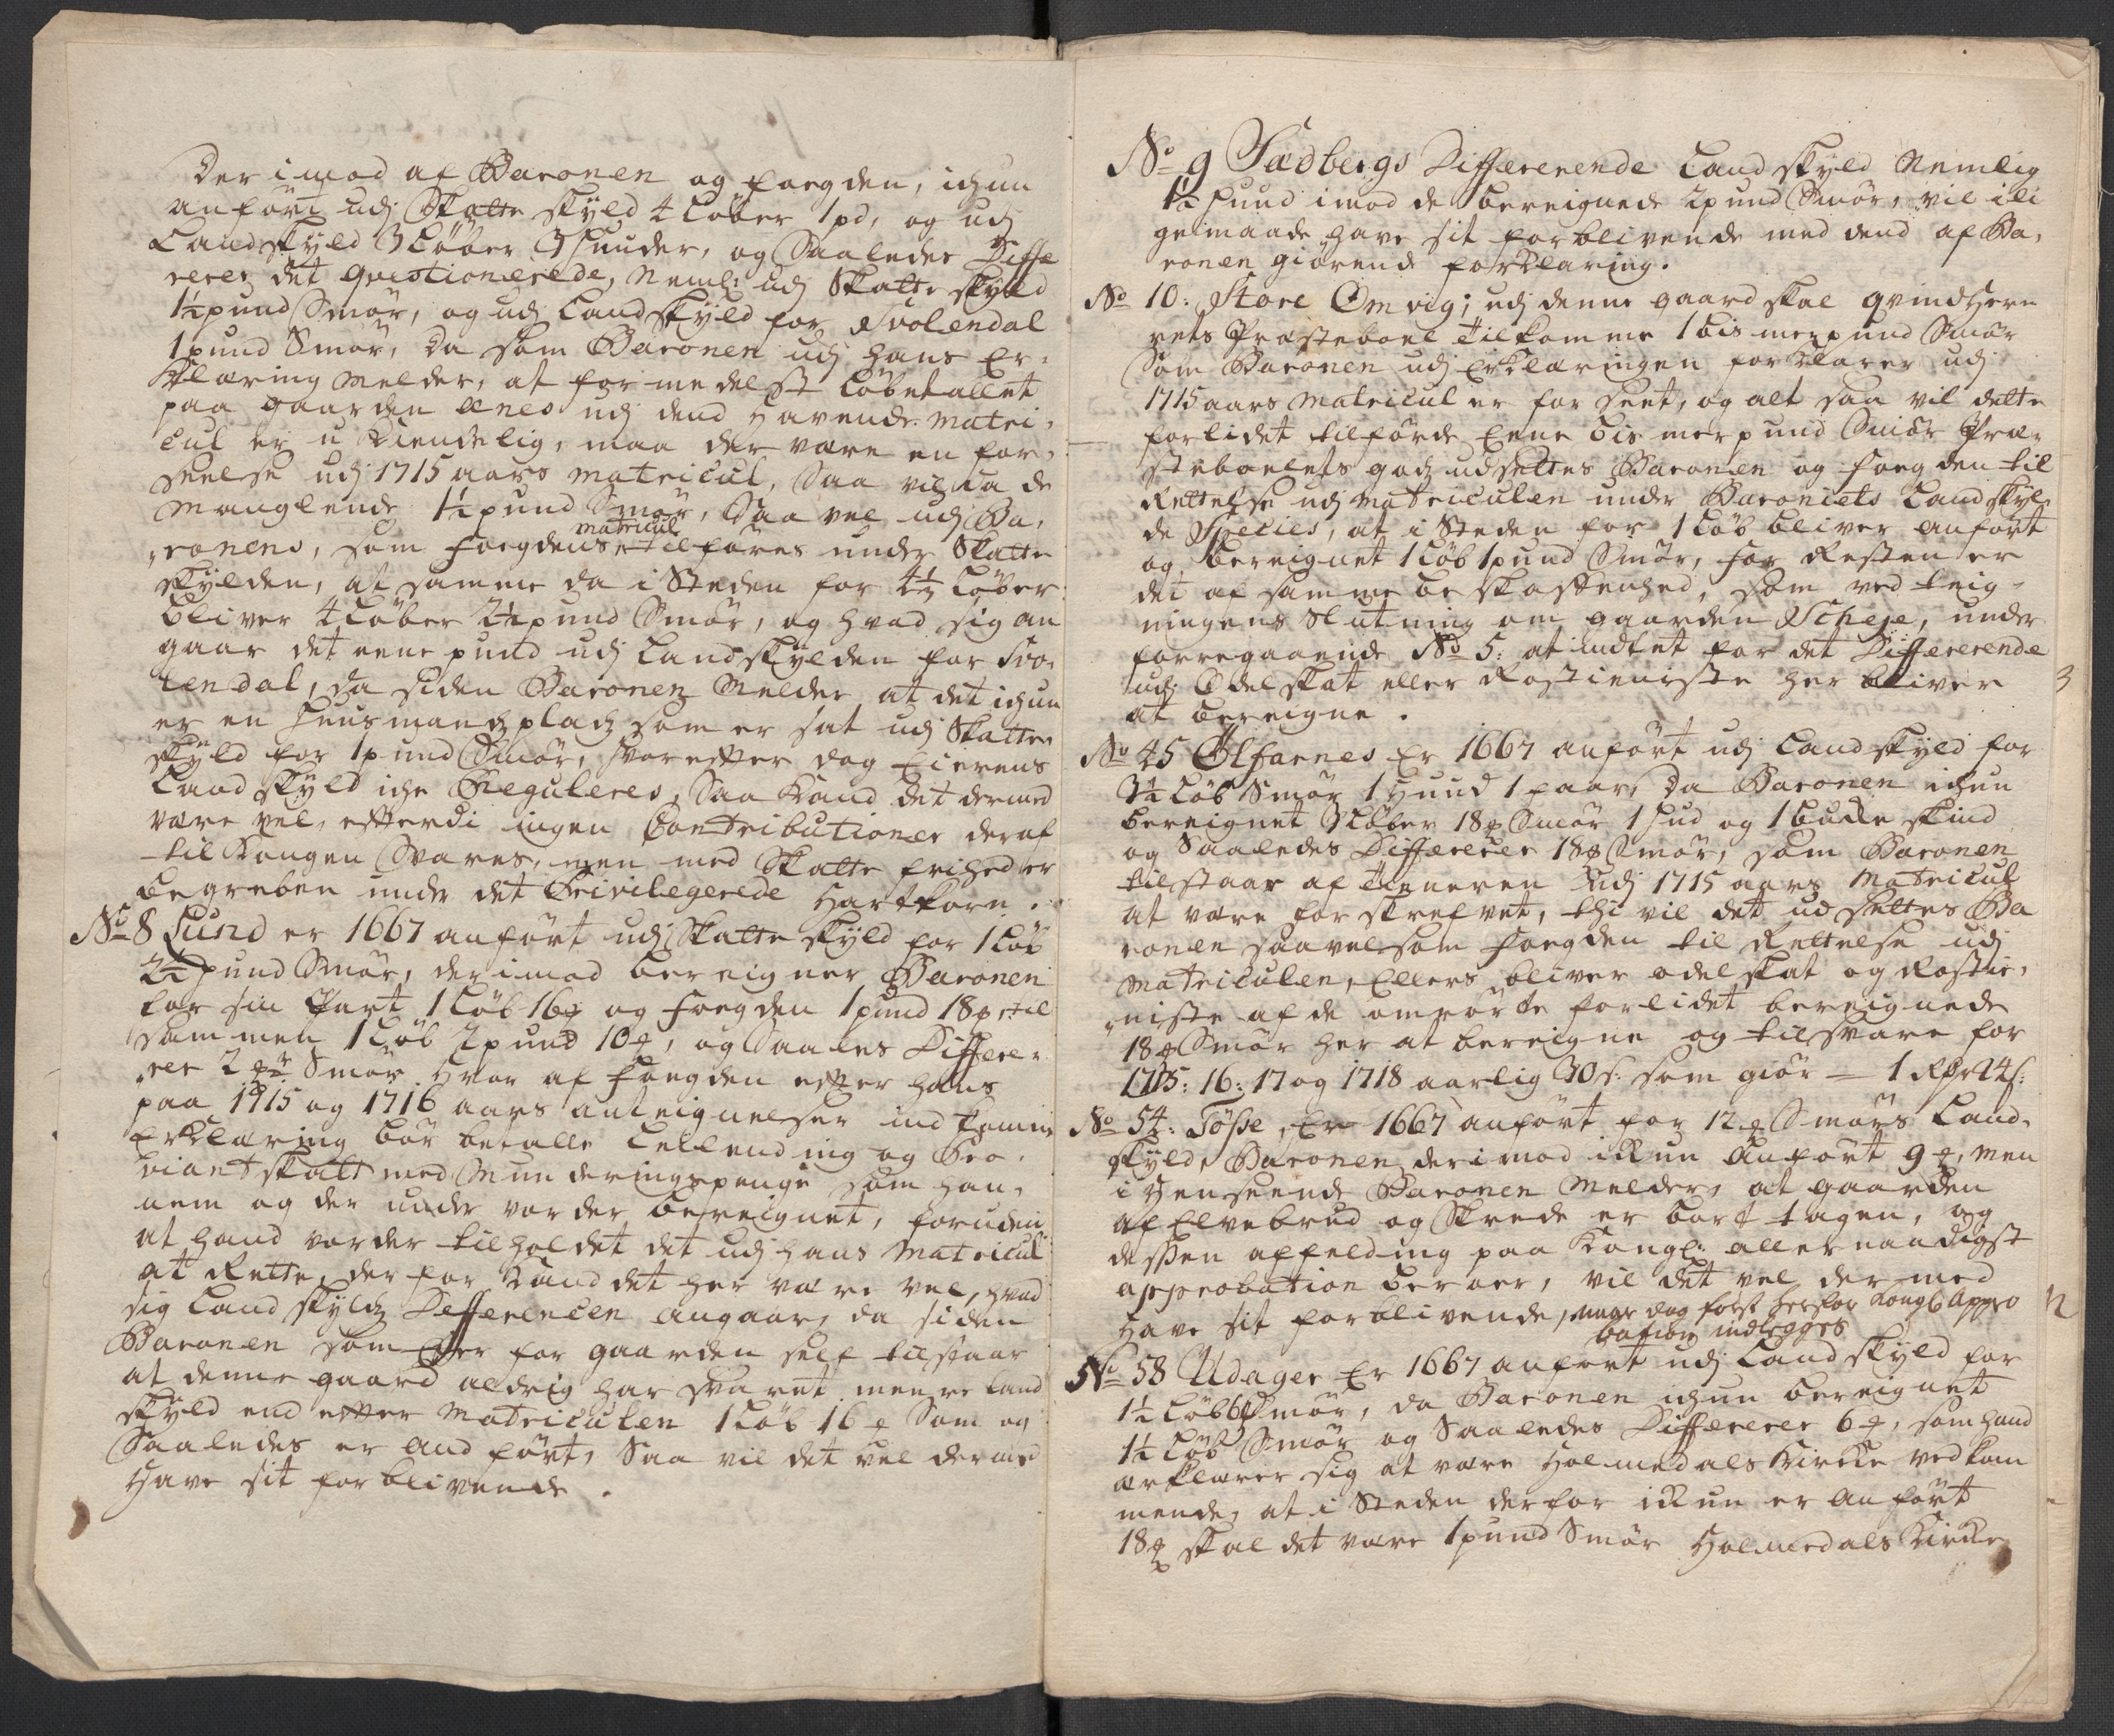 Der imod af Baronen og fogden, ichun
anført udj Skatte skyld 4 Løber 1 pd, og udj
Landskyld 3 Løber 3 Huuder, og Saaledes Diffe
rerer det qvestionerede, Neml: udj Skatte skyld
1½ pund Smør, og udj Landskyld for Svolendal
1 pund Smør, Da som Baronen udj hans Er-
klæring Melder, at formedelst Løbetallet
paa gaarden Ænes udj dend havende Matri-
cul er ukiendelig, maa der være en for-
seelse udj 1715 aars Matricul, Saa vil da de
Manglende 1½ pund Smør, Saa vel udj Ba-
ronens, som fogdens matricul tilføres under Skatte
skylden, at samme da i Steden for 4½ Løber
bliver 4 Løber 2½ pund Smør, og hvad sig an
gaar det eene pund udj Landskylden for Svo-
lendal, da siden Baronen Melder at det ichun
er en Huusmandsplads som er sat udj Skatte
skyld for 1 pund Smør, hvorefter dog Eierens
Landskyld iche Reguleres, Saa kand det dermed
være vel, efterdi ingen Contributioner deraf
til Kongen Svares, men med Skatte frihed er
begreben under det Privilegerede Hartkorn.
No 8 Lund er 1667 anført udj Skatte skyld for 1 Løb
2½ pund Smør, derimod bereigner Baronen
for sin Part 1 Løb 16 ℔ og fogden 1 pund 18 ℔ til
sammen 1 Løb 2 pund 10 ℔, og Saales Differe-
rer 2 ℔ Smør hvor af fogden efter hans
paa 1715 og 1716 aars anteignelser indkomne
Erklæring bør betalle Leilending og Pro-
viantskatt med Munderingspenge som han-
nem og der under vorder bereignet, foruden
at hand vorder tilholdet det udj hans Matricul
at Rette, derfor kand det her være vel, hvad
sig Landskylds Defferencen angaar, da siden
Baronen som Eyer for gaarden self tilstaar
at denne gaard aldrig har svaret meere land
skyld end efter Matriculen 1 Løb 16 ℔ Som og
Saaledes er and ført, Saa vil det vel dermed
Have sit forblivende.
No 9 Sædbergs Differerende Landskyld Nemlig
1½ Huud imod de bereignede 2 pund Smør, vil ili
gemaade have sit forblivende med dend af Ba-
ronen giørende forklaring.
No 10: Store Omvig; udj denne gaard skal qvindher
rets Præsteboel tilkomme 1 bismerpund Smør
Som Baronen udj Erklæringen forklarer udj
1715 aars Matricul er for seet, og alt saa vil dette
forlidet tilførde Eene bismerpund Smør Præ-
steboelets gods udsettes Baronen og fogden til
Rettelse udj Matriculen under Baroniets Landskyl-
de Species, at i Steden for 1 Løb bliver anført
og bereignet 1 Løb 1 pund Smør, for Resten er
det af samme beskaffenhed, som ved teig-
ningens Slutning om gaarden Scheje, under
forregaaende No 5: at indtet for det Differerende
udj Odelskat eller Rostieniste her bliver
at bereigne.
3
No 45 Ølfarnes Er 1667 anført udj Landskyld for
3½ Løb Smør 1 Huud 1 paar, Da Baronen ichun
bereignet 3 Løber 18 ℔ Smør 1 Hud og 1 bukke skind
og Saaledes Differerer 18 ℔ Smør, som Baronen
tilstaar af tieneren udj 1715 aars Matricul
at være forskrefvet, thi vil det udsettes Ba
ronen saavelsom fogden til Rettelse udj
Matriculen, Ellers bliver odelskat og Rostie-
niste af de omrørte forlidet bereignede
18 ℔ Smør her at bereigne og tilsvare for
1715: 16: 17 og 1718 aarlig 30 s: som giør = 1 Rdr 24 s:
No 54: Tøsse, Er 1667 anført for 12 ℔ Smørs Land-
skyld, Baronen derimod ikkun Anført 9 ℔, men
i henseende Baronen Melder, at gaarden
af Elvebrud og Skrede er bort tagen, og
dessen affelding paa Kongl: allernaadigst
approbation beroer, vil det vel der med
Have sit forblivende, naar dog først herfor Kongl: Appro
bation indlegges
No 58 Udager Er 1667 anført udj Landskyld for
1½ Løb 6 ℔ Smør, da Baronen ichun bereignet
1½ Løb Smør og Saaledes Differerer 6 ℔, som hand
ærklærer sig at være Holmedals Kirke vedkom
mende, at i Steden derfor ikkun er Anført
18 ℔ skal det være 1 pund Smør Holmedals Kirke